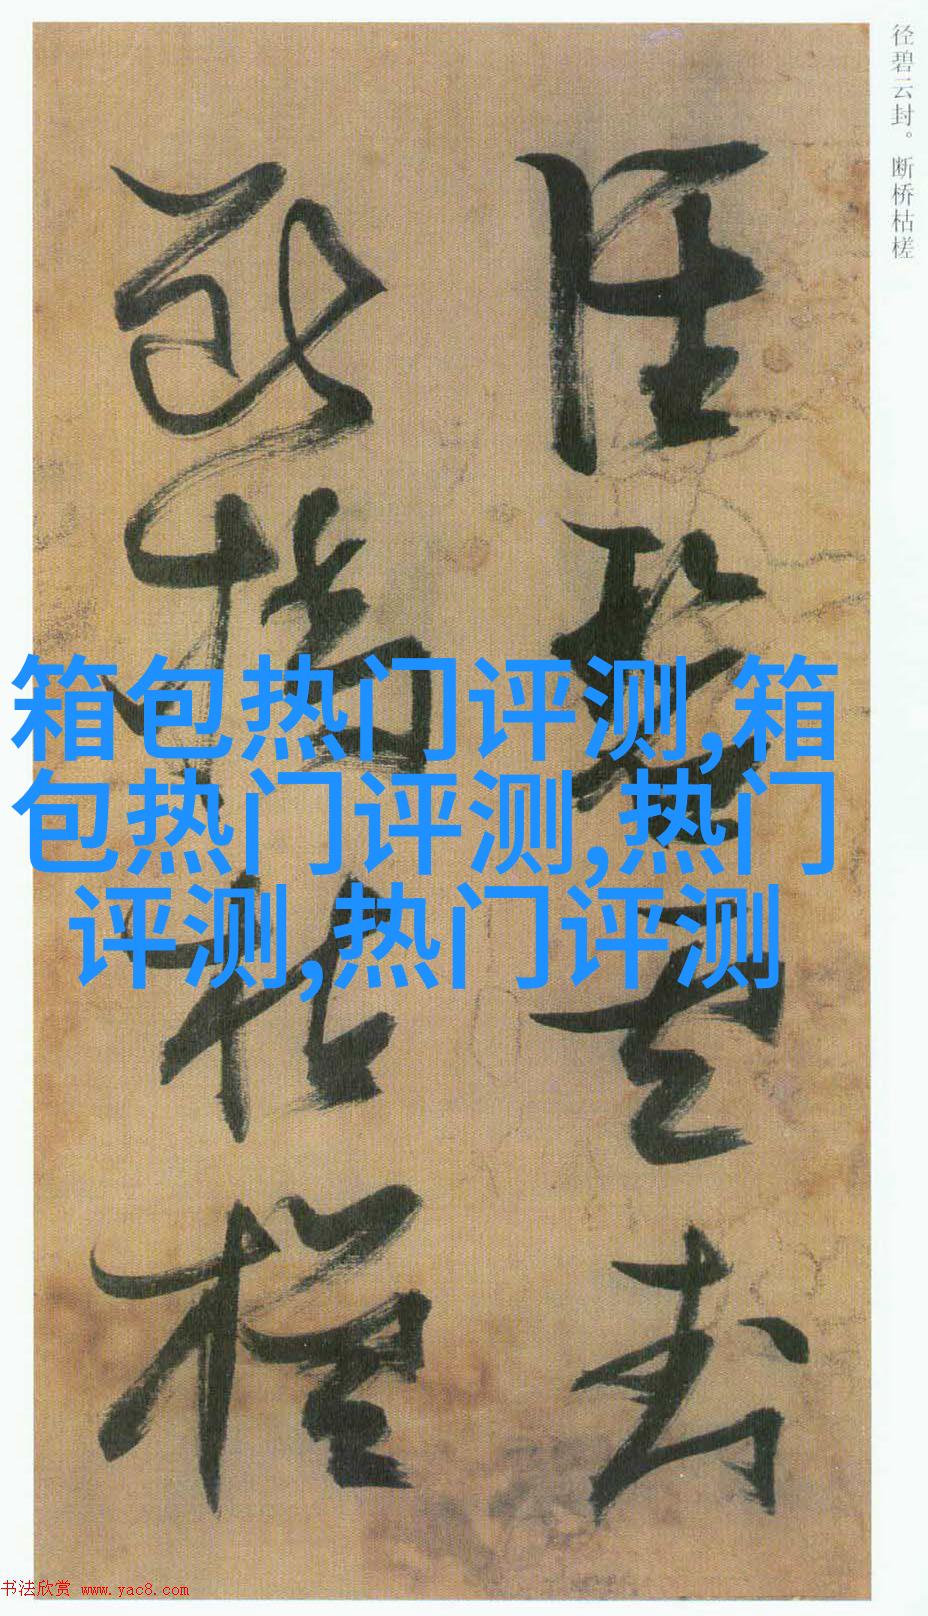 径碧云封。断桥枯槎
径碧云封
断桥枯槎
箱包热门评测,箱
包热门评测,热门
评测,热门评测
书法欣赏 www.yac8.com